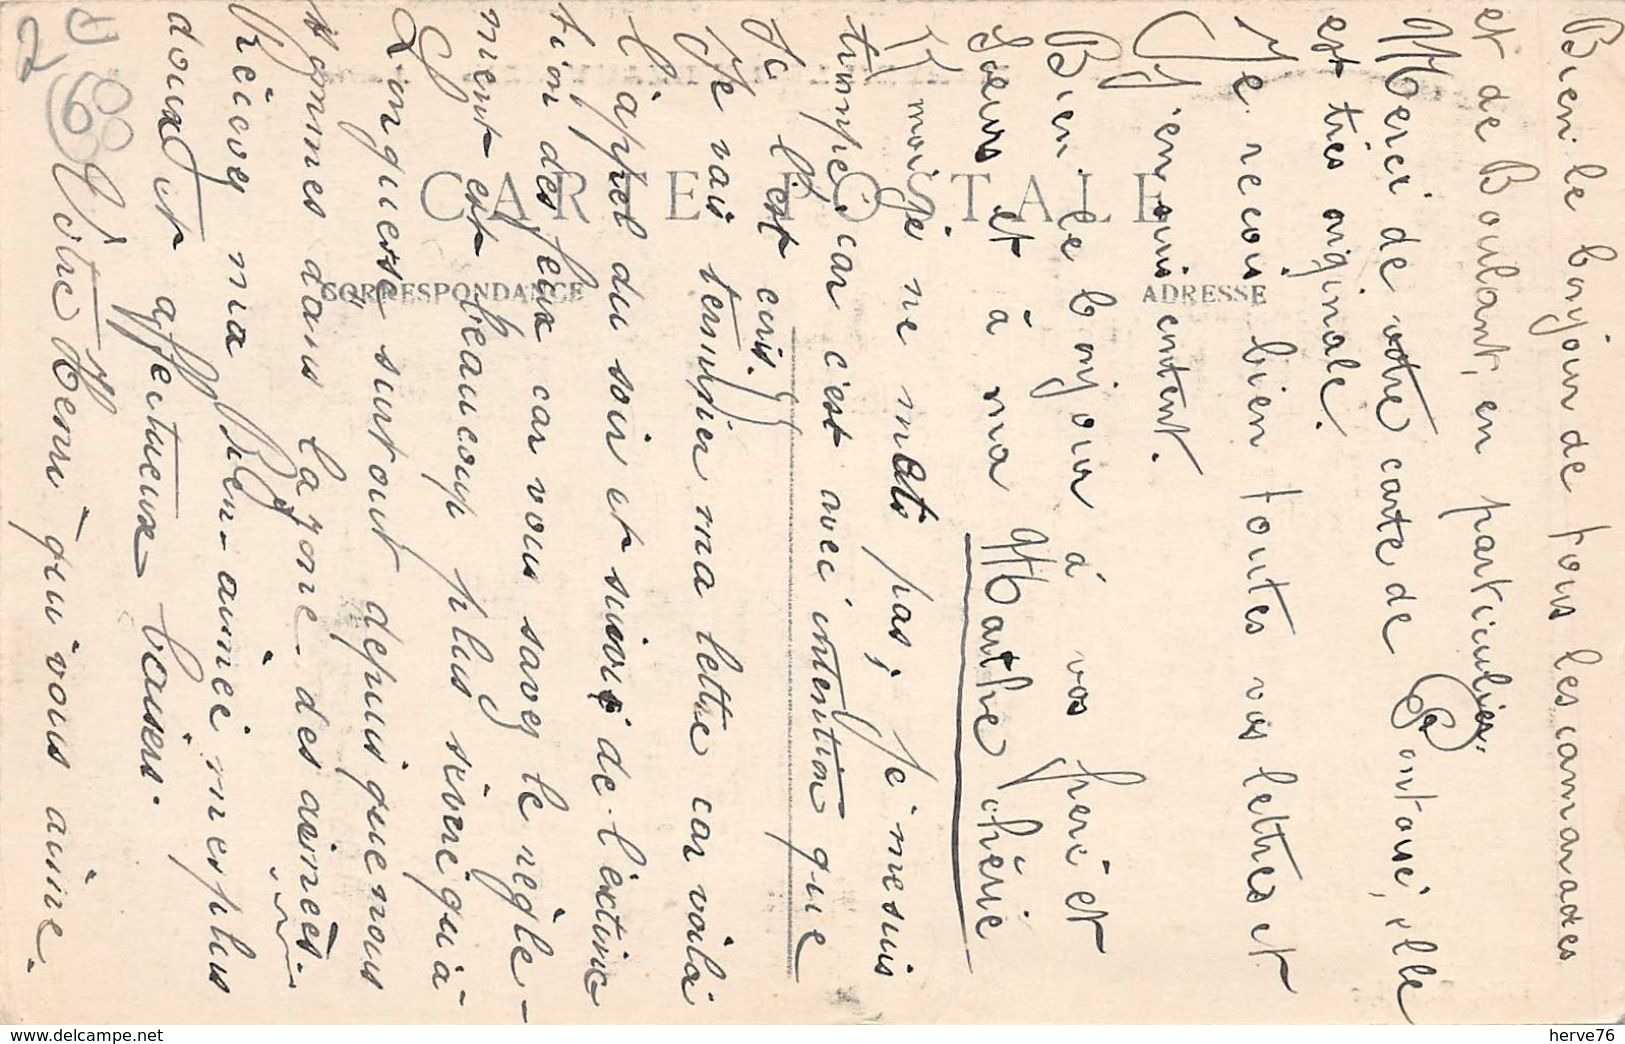 Bien le bonjour de tous les cammarades
et de Boulant, en particulier.
Merci de votre carte de Pontoise, elle
est très originale.
Je recois bien toutes vos lettres et
J'en suis content.
Bien le bonjour à vos frère et
Soeurs et à ma Marthe chérie
moi je ne mets pas, je me suis
trompé car c'est avec intention que
Je l'ai est écris.
Je vais terminer ma lettre car voilà
l'appel du soir et suivi de l'extinc
tion des feux car vous savez le règle-
ment est beaucoup plus sévère qu'à
Longuerse surtout depuis que nous
sommes dans la zone des armées.
Recevez ma Bien-aimée mes plus
doux et affectueux baisers.
Votre Henri qui vous aime.
CARTE POSTALE
CORRESPONDANCE
ADRESSE
www.delcampe.net
herve76